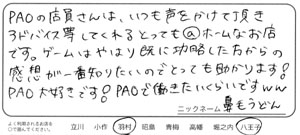 PAOの店員さんは、いつも声をかけて頂き
アドバイス等してくれるとてもⓐホームなお店
です。ゲームはやはり既に功略した方からの
感想が一番知りたいのでとっても助かります!
PAO大好きです!PAOで働きたいくらいですww
ニックネーム 鼻もうどん
よく利用されるお店を
○で選んでください。
立川 小作 羽村 昭島 青梅 高幡 堀之内 八王子